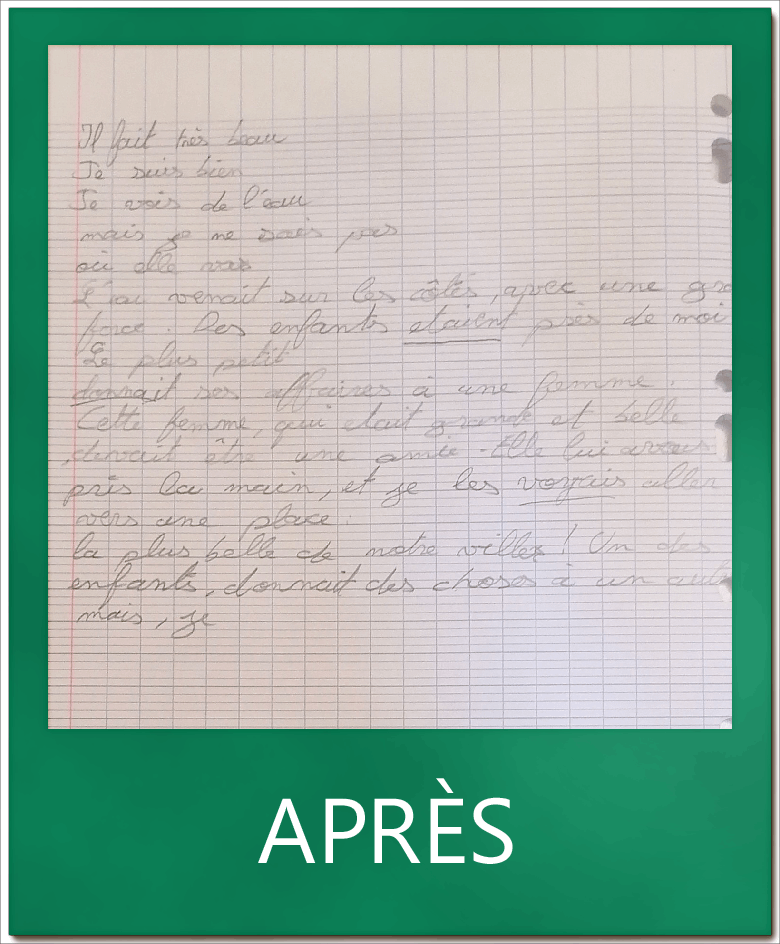 Il fait très beau
Je suis bien
Je vois de l'eau
mais je ne sais pas
où elle vas
venait sur les côtés, avec une
force. Des enfants etaient près de moi
Le plus petit
donnait ses affaires à une femme.
Cette femme, qui etait grande et belle
,devait être une amie. Elle lui
pris la main, et je les voyais aller
vers une place.
la plus belle de notre villes! Un des
enfants, donnait des choses à un
mais, je
APRÈS